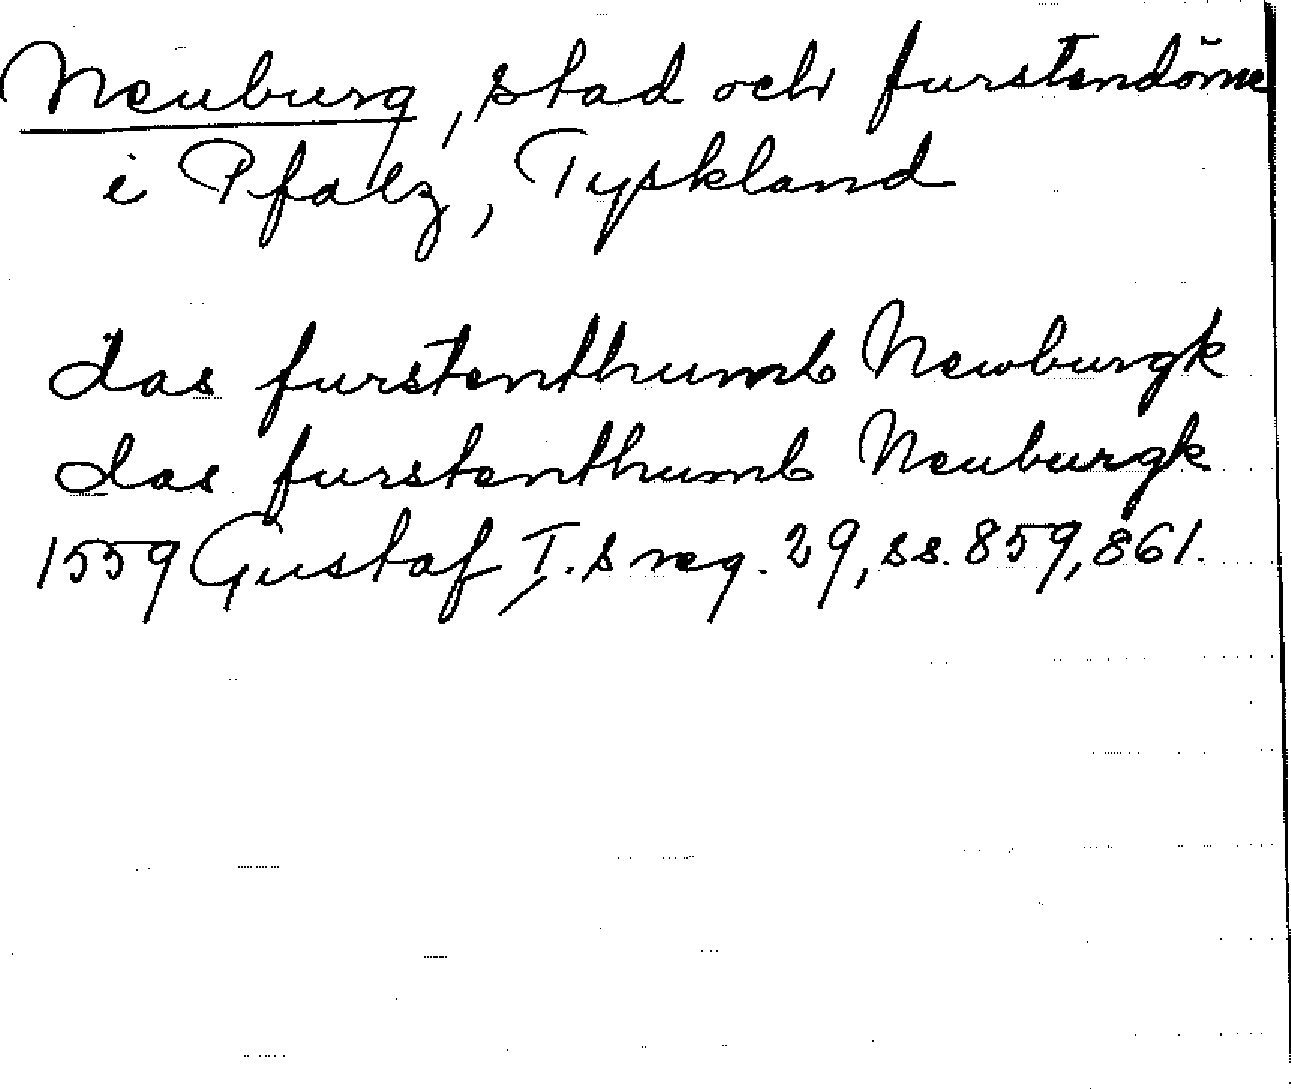 Neuburg, stad och furstendöme
i Pfalz, Tyskland
das furstenthumb Newburgk
das furstenthumb Neuburgk
1559 Gustaf I.s reg. 29, ss. 859, 861.